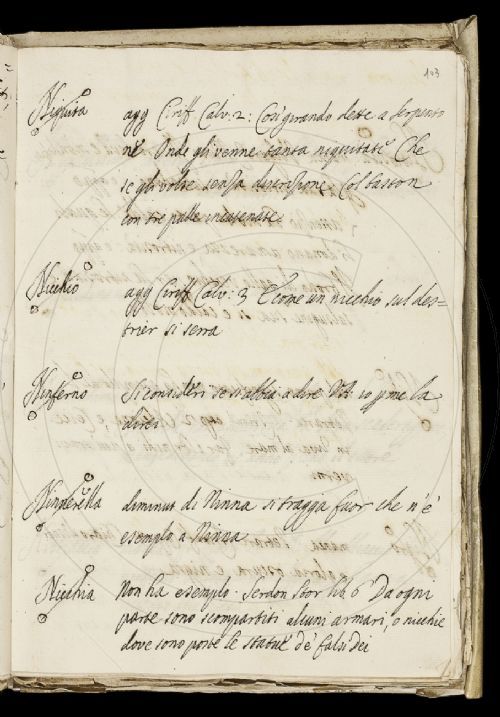 103
Niquità agg Ciriff Calv: 2: Così girando dette a serpento
ne Onde gli venne tanta niquitate Che
se gli volse senza discrezione Col baston
con tre palle incatenate.
Nicchio agg Ciriff Calv: 3 E come un nicchio sul des=
trier si serra
Ninferno Si consideri se si abbia a dire V.A. io p me la
direi
Ninnerella diminut di Ninna si traggia fuor che n'è
esemplo a Ninna
Nicchia Non ha esemplo: Serdon stor lib 6 Da ogni
parte sono scompartiti alcuni armari, o nicchie
dove sono poste le statue de falsi dei